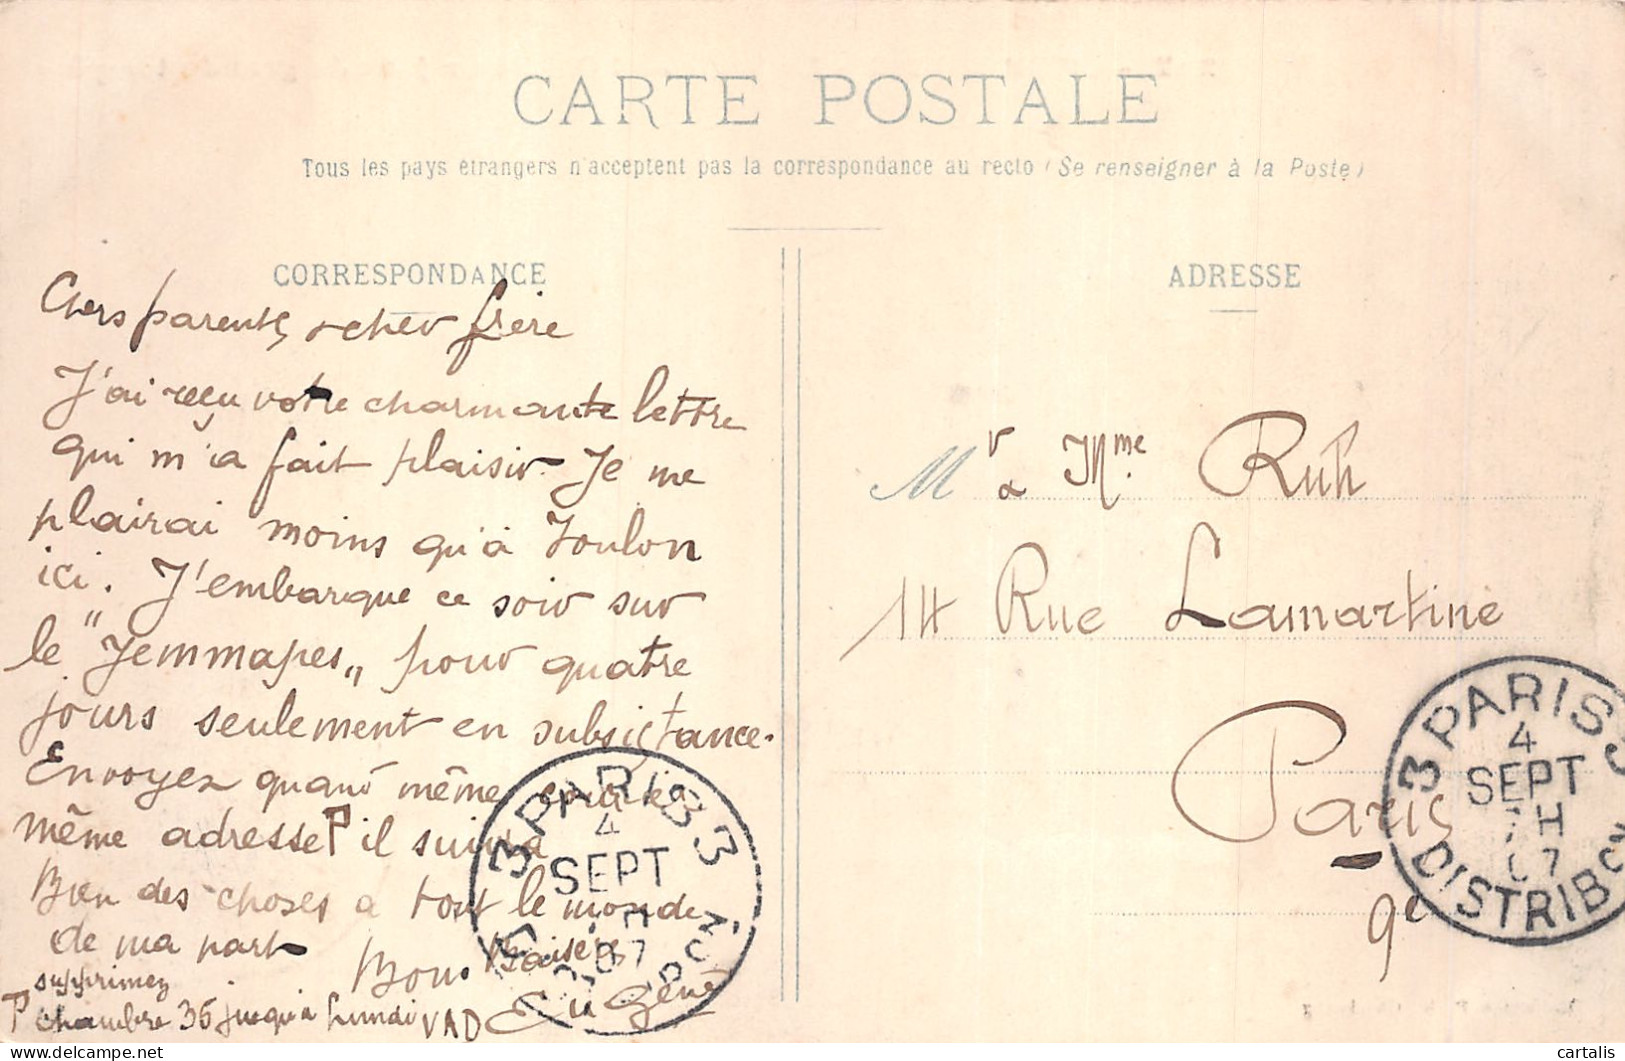 CARTE POSTALE
Tous les pays étrangers n'acceptent pas la correspondance au recto (Se renseigner à la Poste)
CORRESPONDANCE
Chers parents, & cher frère
J'ai reçu votre charmante lettre
qui m'a fait plaisir. Je me
plairai moins qu'à Toulon
ici. J'embarque ce soir sur
le "Jemmapes„ pour quatre
jours seulement en subsistance.
Envoyez quand même
même adresse il suivra
Bien des choses a tout le monde
de ma part Bons Baisers
supprimez
chambre 36 jusqu'à Lundi VAD Eugène
ADRESSE
Mr & Mme. Ruh
14 Rue Lamartine
Paris
9e
3 PARIS 3
4
SEPT
07
DISTRIBON
3 PARIS 3
4
SEPT
7H
07
DISTRIBON
cartalis